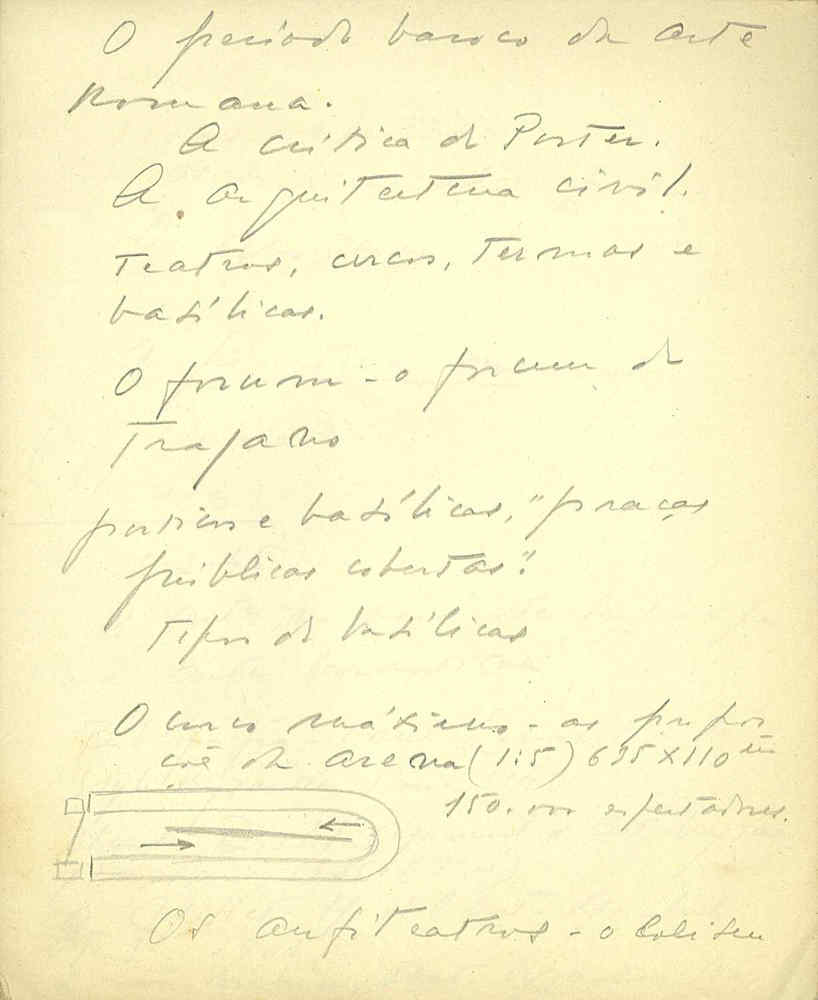 O período baroco da arte
Romana.
A crítica de Porter.
A arquitectura civil.
Teatros, circos, Termas e
basílicas.
O forum - o forum de
Trajano
porticos e basílicas, "praças
públicas cobertas".
Tipos de basílicas
O circo máximo - as propor
ções da arena (1:5) 635x110 m
150.000 espectadores.
Os anfiteatros - o Coliseu